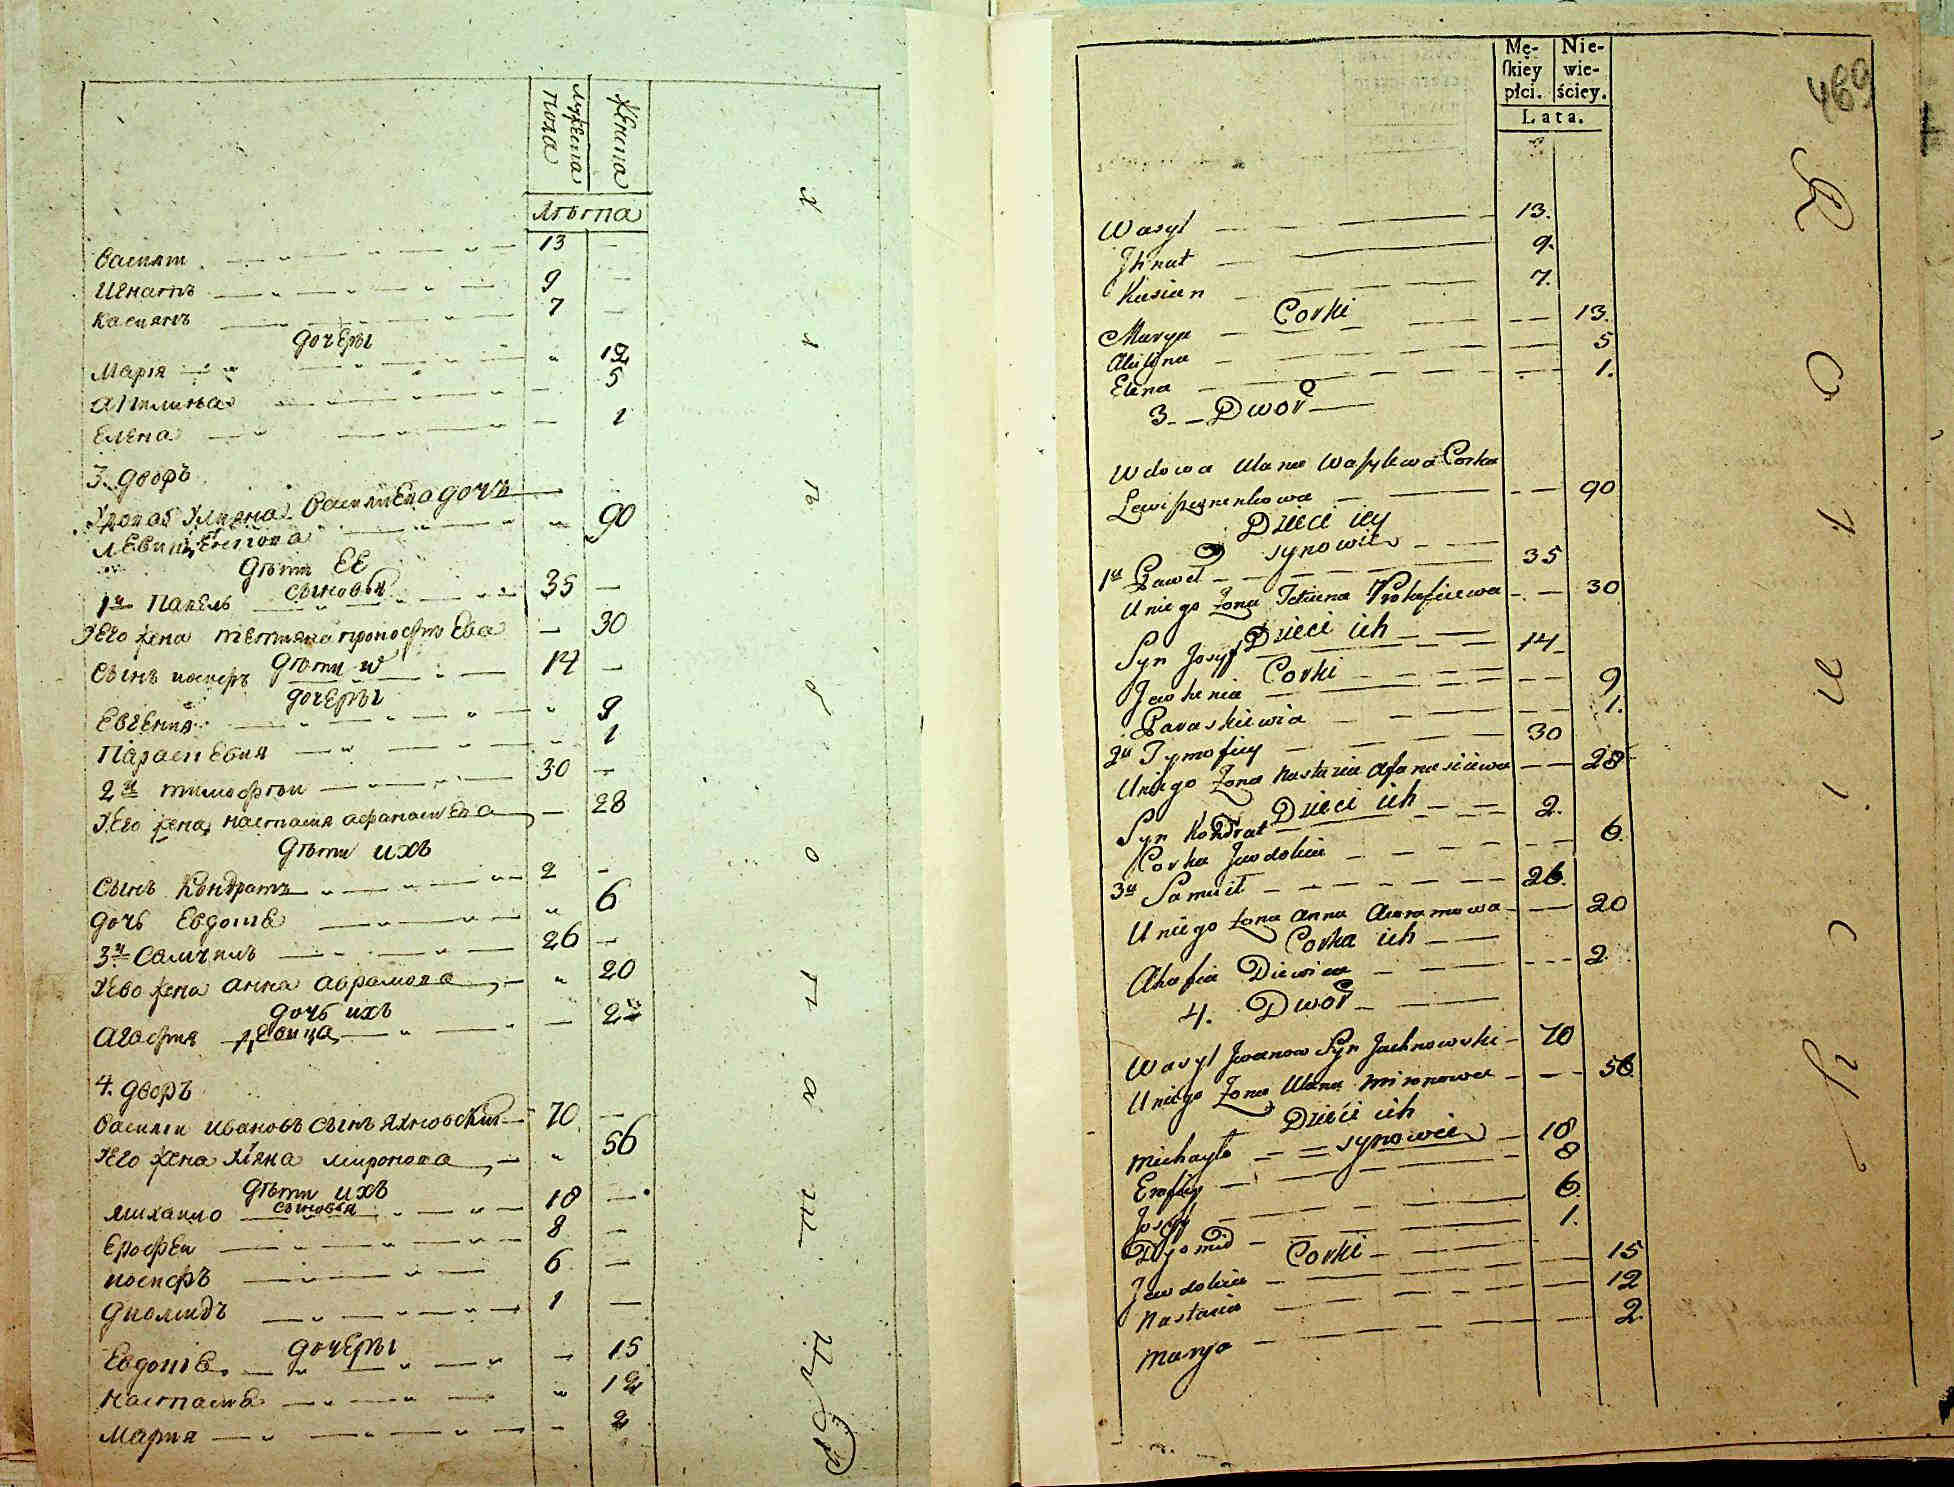 мужеска
пола
женска
лѣта
Василій 13
Игнатъ 9
Касіянъ 7
дочеры
Марія 12
Апилинья 5
Елена 1
3. дворъ
Удова Уляна Василиева дочь
Левищенкова 90
дѣти ЕЕ
сыновья
1й Павелъ 35
У его жена татияна прокофъева 30
дѣти и
Сынъ иосифъ 14
дочеры
Евгения 9
Параскевия 1
2й тимофѣи 30
У Его жена настасия афанасиева 28
дѣти ихъ
Сынъ Кондратъ 2
дочь Евдокия 6
3й Самуилъ 26
У ево жена анна аврамова 20
дочь ихъ
агафия дѣвица 2
4. дворъ
Василии ивановъ сынъ яхновскии 70
У Его жена Уляна миронова 56
дѣти ихъ
сыновья
михаило 18
Ерофеи 8
иосифъ 6
диомидъ 1
дочеры
Евдокия 15
Настасия 12
Мария 2
469
Mę-
skiey
płci.
Nie-
wie-
ściey.
Lata.
Wasyl 13.
Jhnat 9.
Kasian 7.
Corki
Marya 13.
Akilina 5
Elena 1.
3. Dwor
Wdowa Ulana Wasylewa Corka
Lewiszczenkowa 90
Dzieci iey
synowie
1y Paweł 35
U niego Zona Tetiana Prokofiewa 30
Dzieci ich
Syn Josyf 14
Corki
Jewhenia 9
Paraskiewia 1.
2y Tymofiey 30
U niego Zona Nastazia Afanasiiewa 28
Dzieci ich
Syn Kondrat 2.
Corka Jewdokia 6.
3y Samuił 26.
U niego Zona Anna Awramowa 20
Corka ich
Ahafia Diewica 2
4. Dwor
Wasyl Jwanow Syn Jachnowski 70
U niego Zona Ulana Mironowa 56
Dzieci ich
synowie
Michayło 18
Erofiey 8
Josyf 6.
Dyomid 1.
Corki
Jewdokia 15
Nastasia 12
Marya 2.